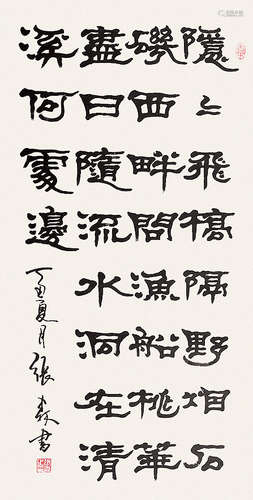 隱〻飛橋隔野烟石
磯西畔問漁船桃華
盡日隨流水洞在清
溪何處邊
丁丑夏月張森書